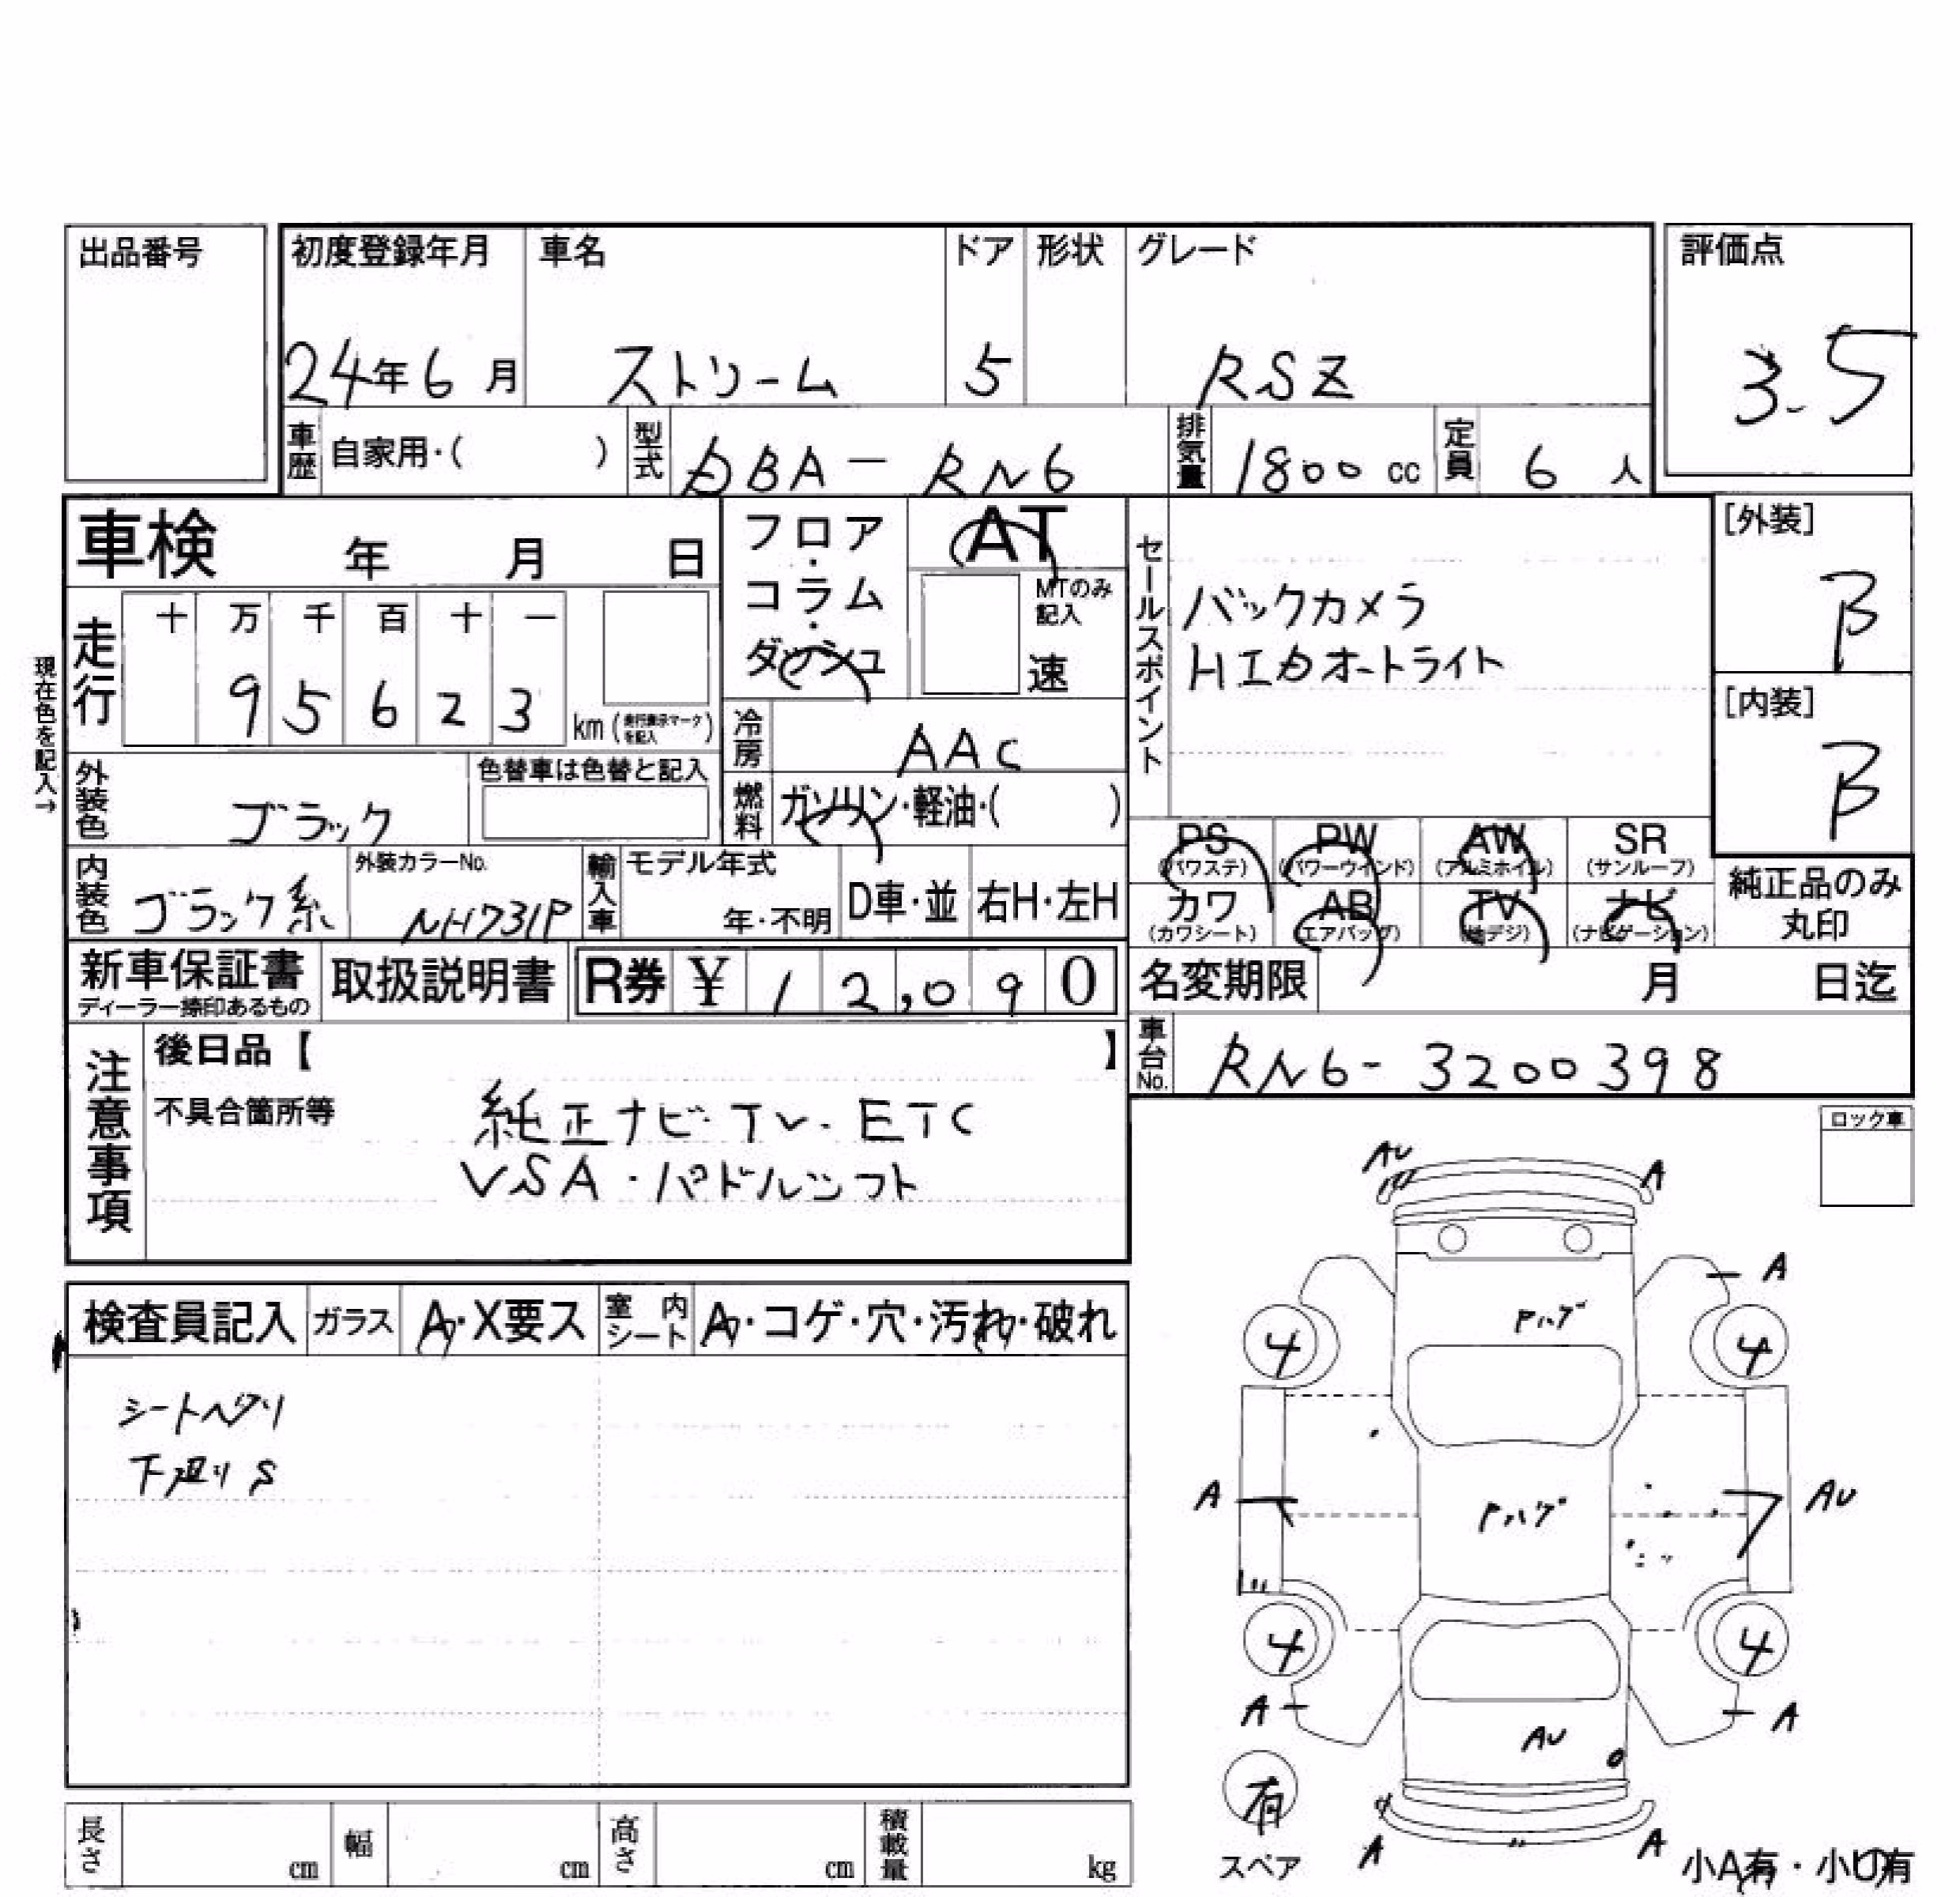 出品番号
初度登録年月 車名 ドア 形状 グレード 評価点
24年6月 ストリーム 5 RSZ 3.5
車歴 自家用・( ) 型式 DBA-RN6 排気量 1800cc 定員 6人
車検 年 月 日
フロア・コラム・ダッシュ AT
MTのみ記入
速
セールスポイント
バックカメラ
HIDオートライト
[外装]
B
[内装]
B
現在色を記入→
走行 十 万 千 百 十 一
9 5 6 2 3 km (走行表示マークを記入)
冷房 AAC
外装色 ブラック 色替車は色替と記入
燃料 ガソリン・軽油・( )
PS (パワステ) PW (パワーウインド) AW (アルミホイル) SR (サンルーフ)
カワ (カワシート) AB (エアバッグ) TV (地デジ) ナビ (ナビゲーション)
純正品のみ丸印
内装色 ブラック系 外装カラーNo. NH731P 輸入車 モデル年式 年・不明 D車・並 右H・左H
新車保証書 ディーラー捺印あるもの 取扱説明書 R券 ¥ 12,090
名変期限 月 日迄
車台No. RN6-3200398
注意事項
後日品【 】
不具合箇所等
純正ナビ・TV・ETC
VSA・パドルシフト
ロック車
検査員記入 ガラス A・X要ス 室内シート A・コゲ・穴・汚れ・破れ
シートヘタリ
下廻りS
AU A
A
Pハゲ
4 4
A Pハゲ AU
4 4
A A
AU
有
スペア
A A
小A有・小U有
長さ cm 幅 cm 高さ cm 積載量 kg